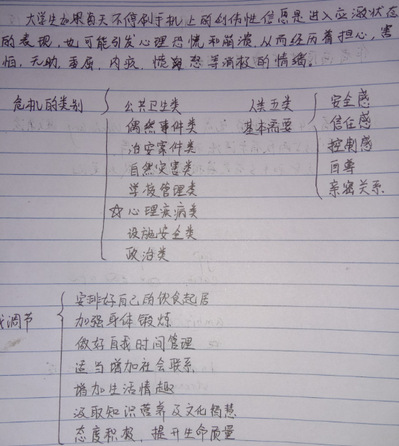 大学生如果每天不停刷手机上的创伤性信息是进入应激状态
的表现,也可能引发心理恐慌和崩溃,从而经历着担心,害
怕,无助,委屈,内疚,愤怒等消极的情绪。
危机的类别
公共卫生类
偶然事件类
治安案件类
自然灾害类
学校管理类
☆心理疾病类
设施安全类
政治类
人类五类
基本需要
安全感
信任感
控制感
自尊
亲密关系
我调节
安排好自己的饮食起居
加强身体锻炼
做好自我时间管理
适当增加社会联系
增加生活情趣
汲取知识营养及文化智慧
态度积极,提升生命质量